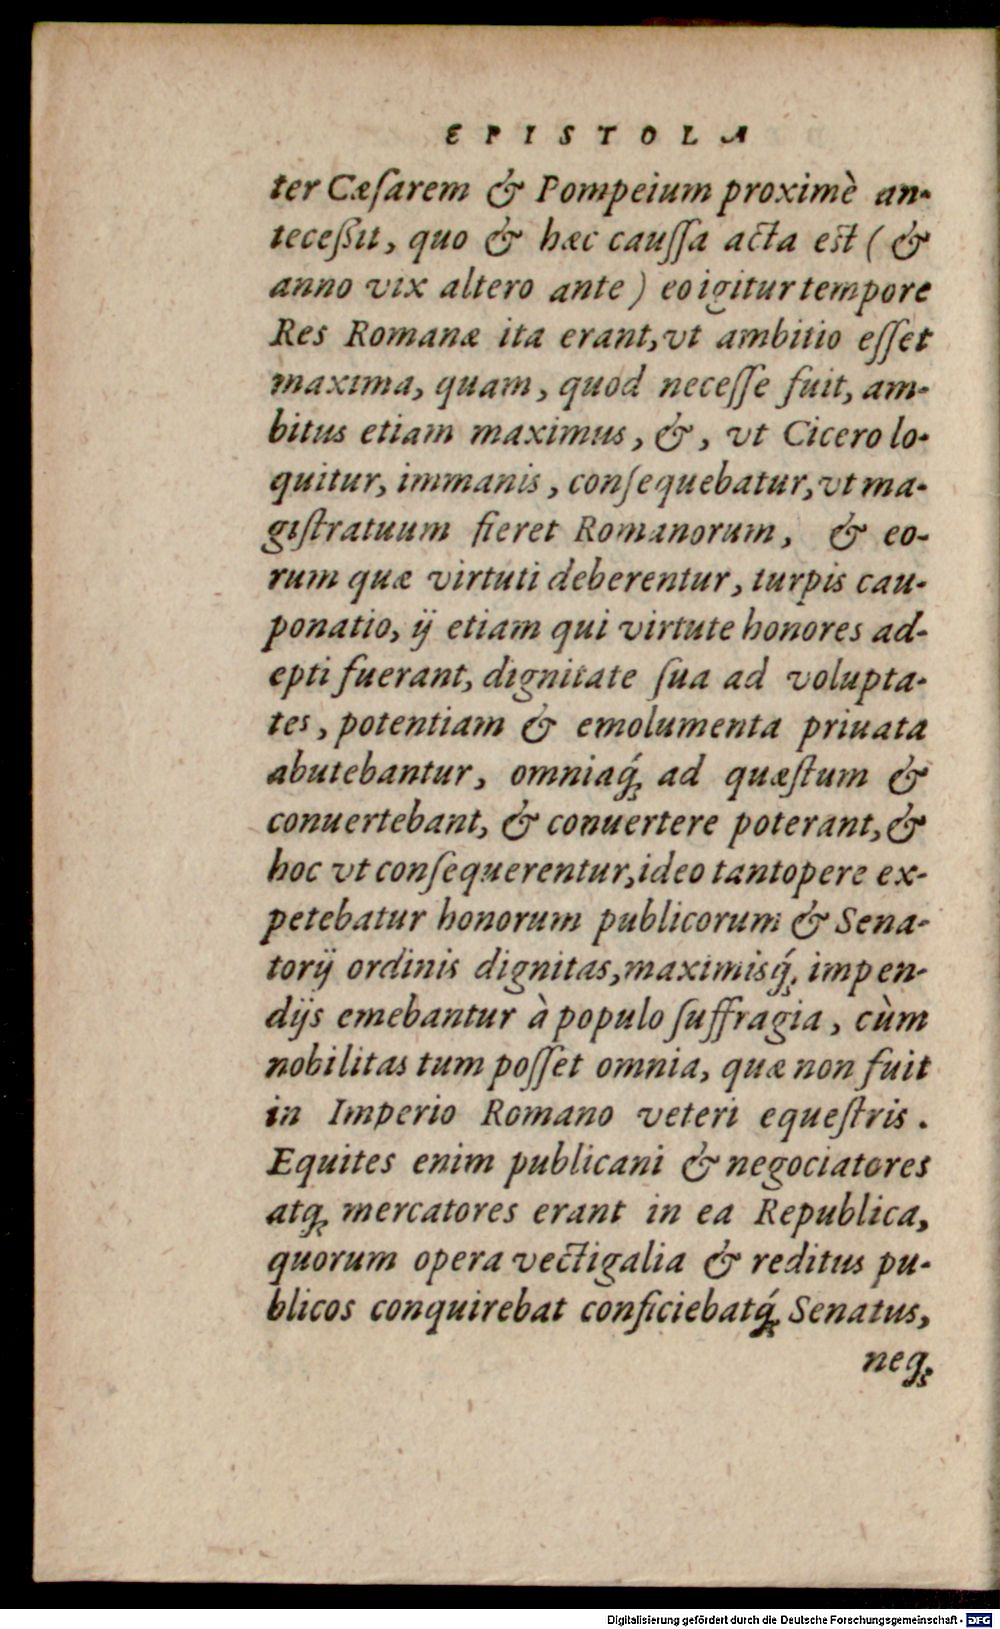 EPISTOLA
ter Cæſarem & Pompeium proximè an-
teceßit, quo & hæc cauſſa acta est ( &
anno vix altero ante ) eo igitur tempore
Res Romanæ ita erant, vt ambitio eſſet
maxima, quam, quod neceſſe fuit, am-
bitus etiam maximus, &, vt Cicero lo-
quitur, immanis, conſequebatur, vt ma-
giſtratuum fieret Romanorum, & eo-
rum quæ virtuti deberentur, turpis cau-
ponatio, ij etiam qui virtute honores ad-
epti fuerant, dignitate ſua ad volupta-
tes, potentiam & emolumenta priuata
abutebantur, omniaq́; ad quæſtum &
conuertebant, & conuertere poterant, &
hoc vt conſequerentur, ideo tantopere ex-
petebatur honorum publicorum & Sena-
torij ordinis dignitas, maximisq́; impen-
dijs emebantur à populo ſuffragia, cùm
nobilitas tum poſſet omnia, quæ non fuit
in Imperio Romano veteri equeſtris.
Equites enim publicani & negociatores
atq; mercatores erant in ea Republica,
quorum opera vectigalia & reditus pu-
blicos conquirebat conficiebatq́; Senatus,
neq;
Digitalisierung gefördert durch die Deutsche Forschungsgemeinschaft - DFG